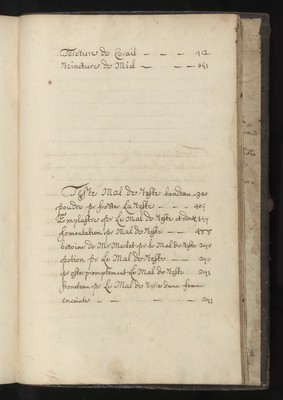 Teincture de Corail — — — 412
Teincture de Miel — — — 641
Teste Mal de Teste bandeau 340
poudre pr frotter La Teste — — 405
Emplastre pr Le Mal de Teste et de
fomentation pr Mal de Teste — 488
betoine de Mr Merlet pr Le Mal de Teste 270
potion pr Le Mal de Teste — — 270
pr oster promptement Le Mal de Teste 271
frondeau pr Le Mal de Teste dune femme
enceinte — — — — 271